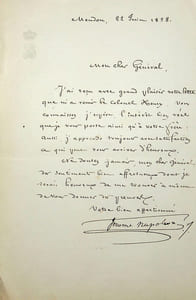 Meudon, 22 Juin, 1858.
Mon cher Général,
J'ai reçu avec grand plaisir votre lettre
que m'a remis le Colonel Henry. Vous
connaissez, j'espère, l'intérêt bien réel
que je vous porte ainsi qu'à votre frère.
Aussi j'apprends toujours avec satisfaction
ce qui peut vous arriver d'heureux.
Ne doutez jamais, mon cher Général
du sentiment bien affectueux dont je
serai heureux de me trouver à même
de vous donner des preuves.
Votre bien affectionné
Jérôme Napoléon